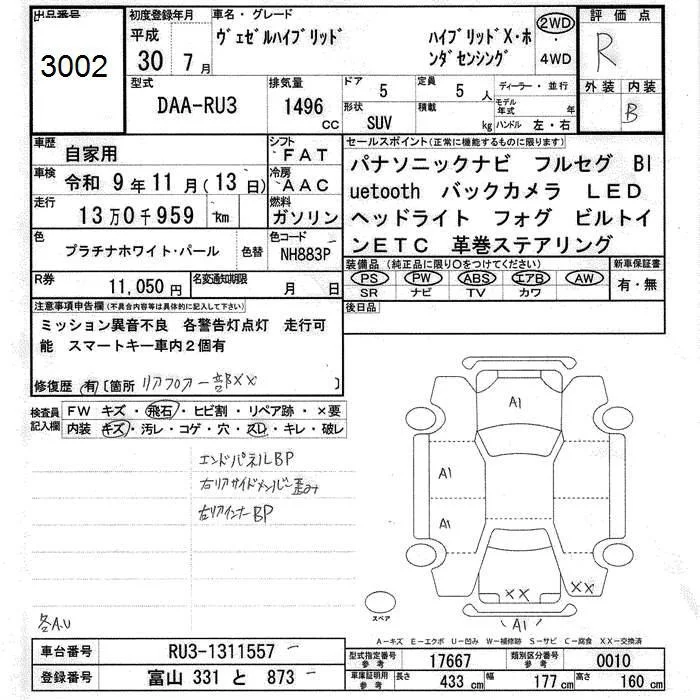 出品番号
3002
初度登録年月
平成
30 7月
車名・グレード
ヴェゼルハイブリッド
ハイブリッドX・ホ
ンダセンシング
2WD
・
4WD
評価点
R
外装 内装
B
型式
DAA-RU3
排気量
1496
cc
ドア
5
定員
5 人
形状
SUV
積載
kg
ディーラー・並行
モデル
年式
年
ハンドル 左・右
車歴
自家用
シフト
FAT
車検
令和 9年11月(13日)
冷房
AAC
走行
13万0千959 km
燃料
ガソリン
色
プラチナホワイト・パール
色替
色コード
NH883P
R券
11,050円
名変通知期限
月 日
セールスポイント(正常に機能するものに限ります)
パナソニックナビ フルセグ Bl
uetooth バックカメラ LED
ヘッドライト フォグ ビルトイ
ンETC 革巻ステアリング
装備品(純正品に限り○をつけてください)
PS PW ABS エアB AW
SR ナビ TV カワ
新車保証書
有・無
後日品
注意事項申告欄(不具合内容等は具体的に記入して下さい)
ミッション異音不良 各警告灯点灯 走行可
能 スマートキー車内2個有
修復歴 有〔箇所 リアフロアー部XX 〕
検査員
記入欄
FW キズ・飛石・ヒビ割・リペア跡・×要
内装 キズ・汚レ・コゲ・穴・スレ・キレ・破レ
エンドパネルBP
右リアサイドメンバー歪み
左リアインナーBP
各A.U
A1
A1
A1
XX
XX
A1
スペア
A-キズ E-エクボ U-凹み W-補修跡 S-サビ C-腐食 XX-交換済
車台番号
RU3-1311557
登録番号
富山 331 と 873
型式指定番号
参考
17667
類別区分番号
参考
0010
車庫証明用
参考
長さ
433 cm
幅
177 cm
高さ
160 cm